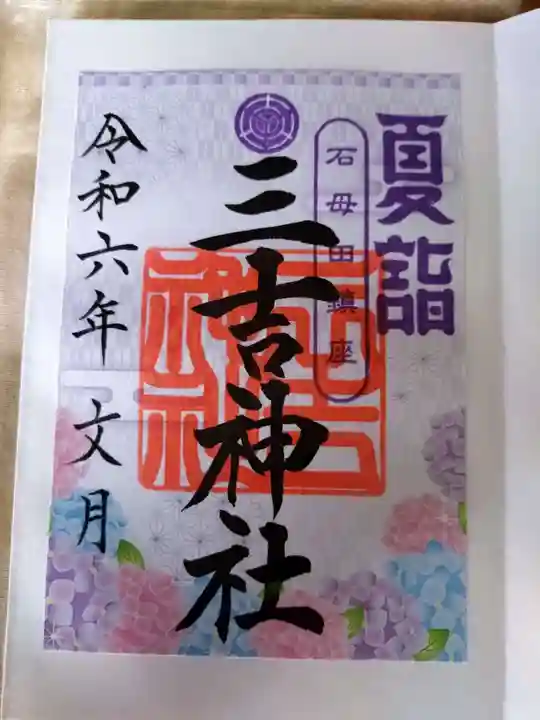 夏詣
石母田鎮座
三吉神社
三吉神社
令和六年 文月